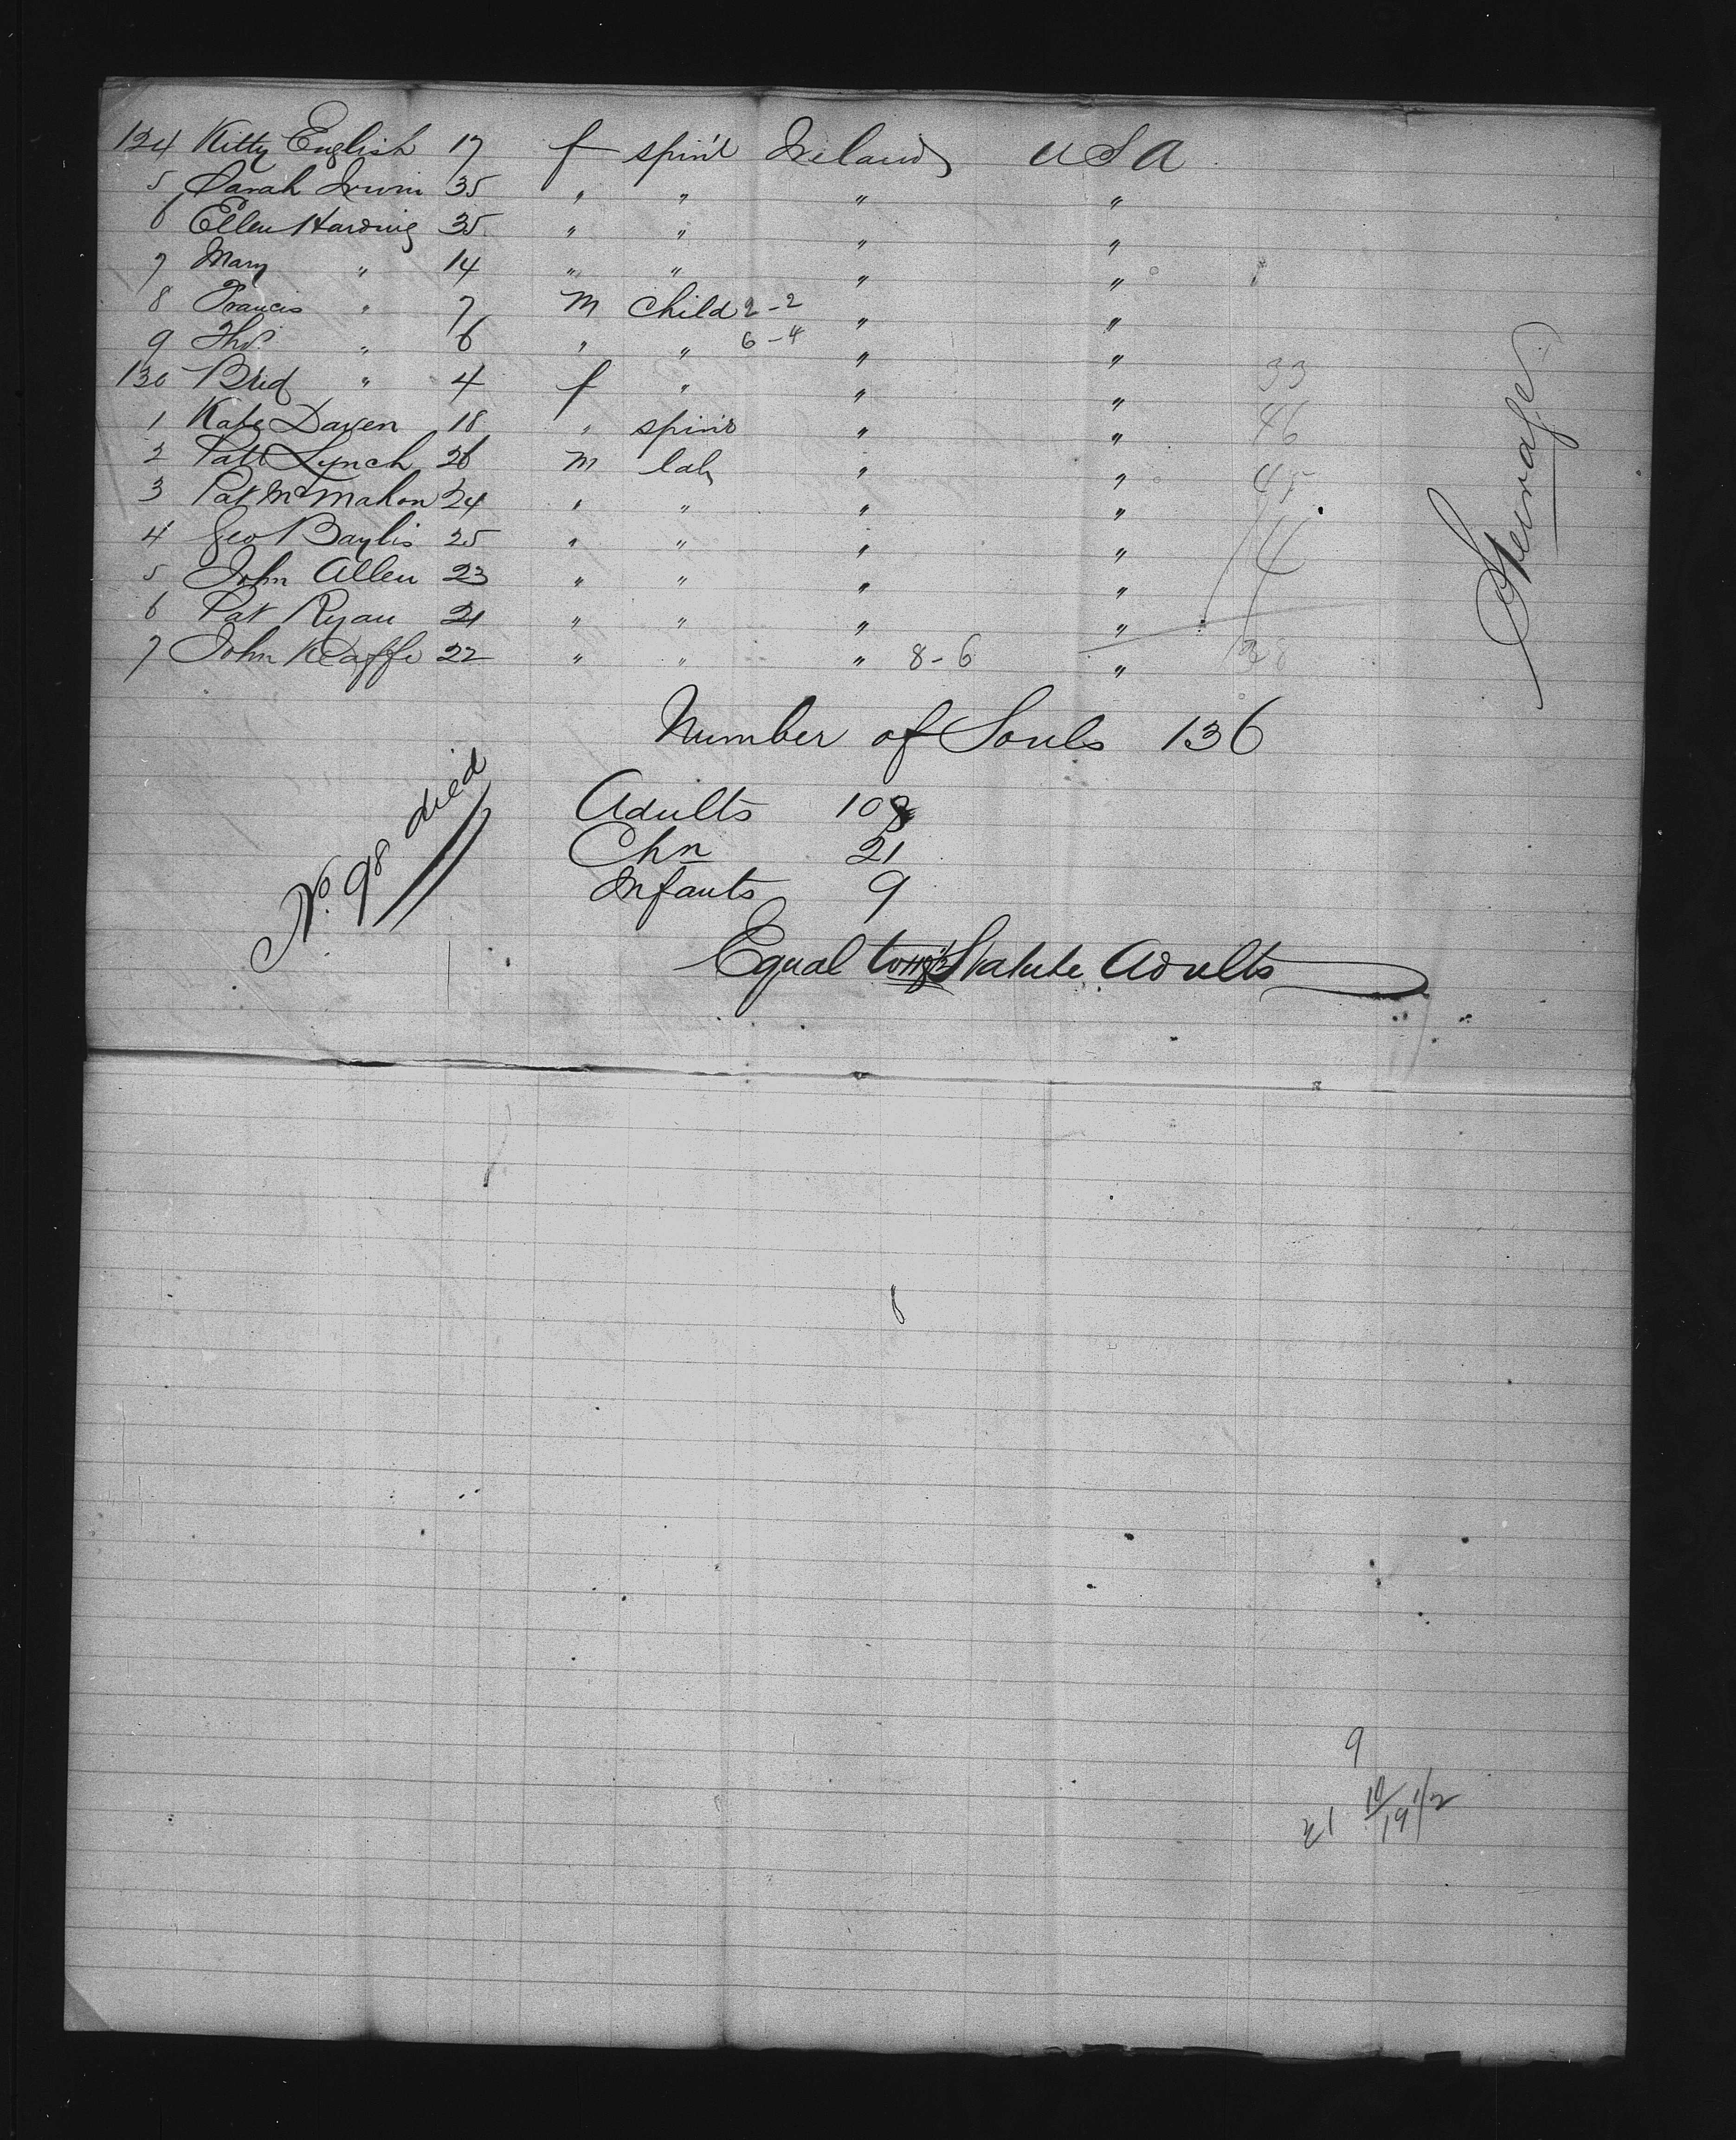 124 Kitty English 17 f spin't Ireland USA
5 Sarah Irwin 35 " " " "
6 Ellen Harding 35 " " " "
7 Mary " 14 " " " "
8 Francis " 7 M Child 2-2 " "
9 Thos " 6 " " 6-4 " "
130 Brid " 4 f " " " 33
1 Kate Daven 18 " spin's " " 46
2 Patt Lynch 26 M lab " " 45
3 Pat McMahon 24 " " " "
4 Geo Baylis 25 " " " " 14
5 John Allen 23 " " " "
6 Pat Ryan 21 " " " "
7 John 22 " " " 8-6 "
Steerage
Number of Souls 136
No. 98 died
Adults 108
Chn 21
Infants 9
Equal to Statute Adults
9
21 10 19 1/2